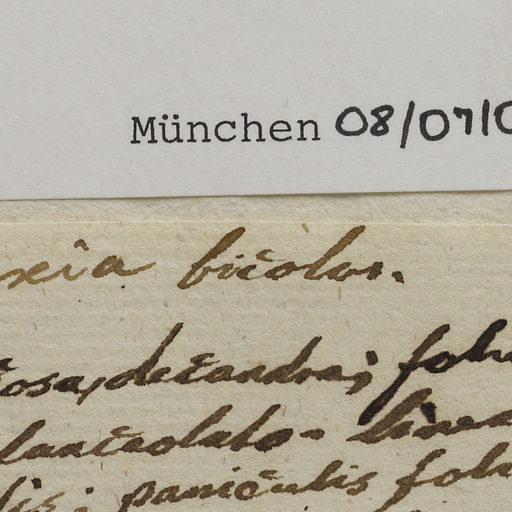 München 08/07/0
xia bicolor.
cosa, decandra; folu
lanceolato-linea
lis; paniculis folu